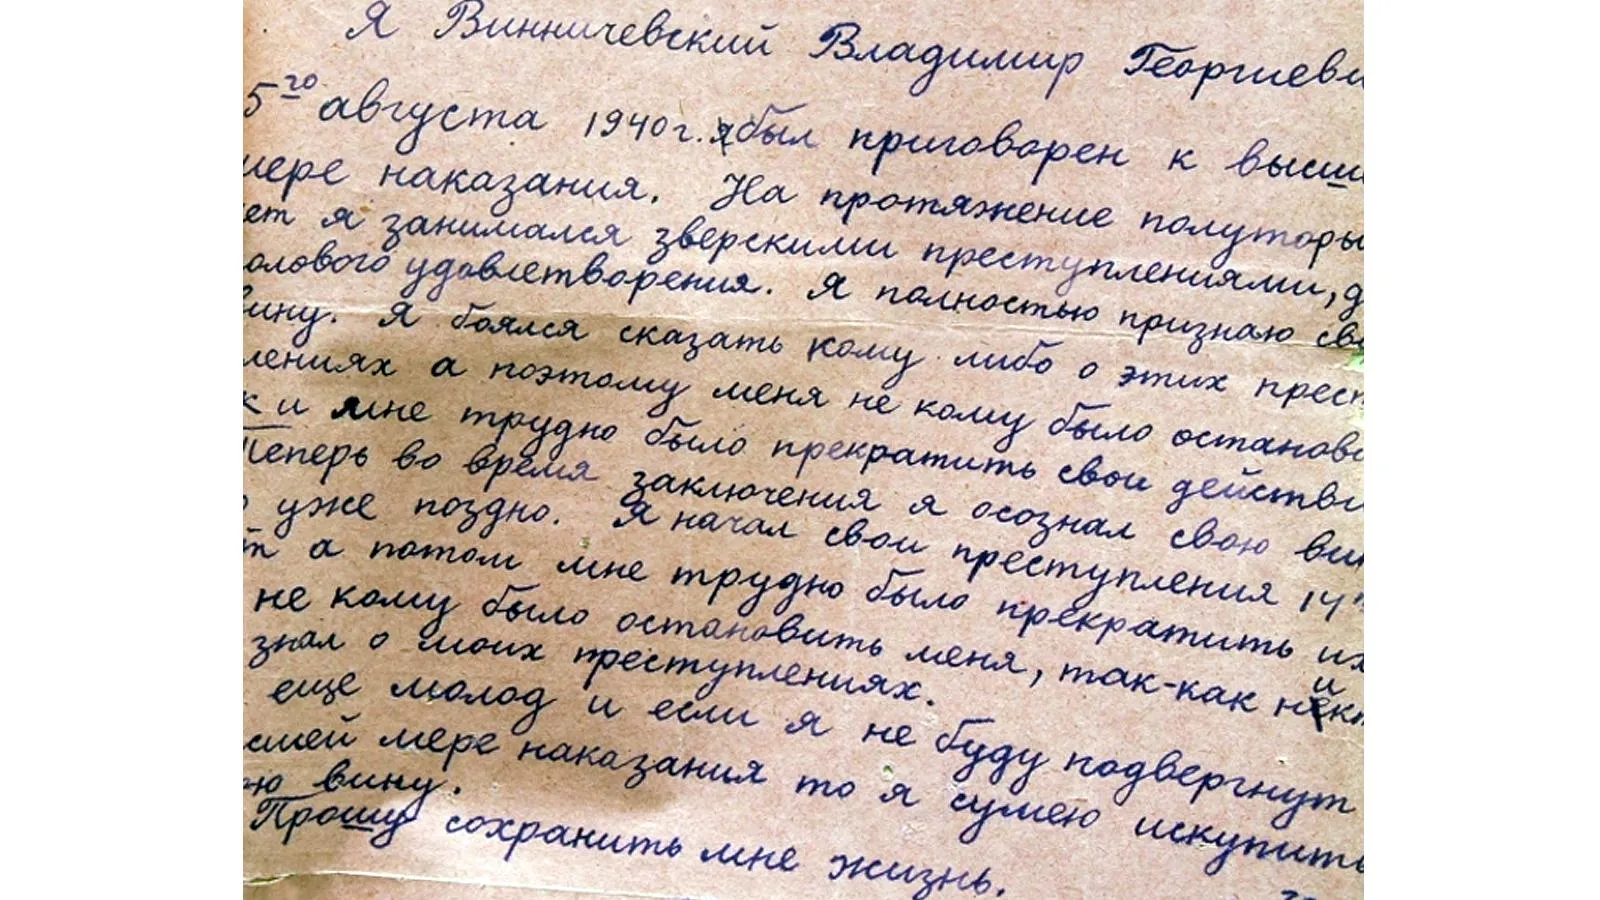 Я Винничевский Владимир Георгиеви
5го августа 1940г. я был приговорен к высш
мере наказания. На протяжение полуторы
ет я занимался зверскими преступлениями, д
олового удовлетворения. Я полностью признаю сво
вину. Я боялся сказать кому либо о этих прест
лениях а поэтому меня не кому было останови
к и мне трудно было прекратить свои действи
Теперь во время заключения я осознал свою вин
о уже поздно. Я начал свои преступления 14
т а потом мне трудно было прекратить их
не кому было остановить меня, так-как никт
знал о моих преступлениях.
еще молод и если я не буду подвергнут
сшей мере наказания то я сумею искупить
ою вину.
Прошу сохранить мне жизнь.